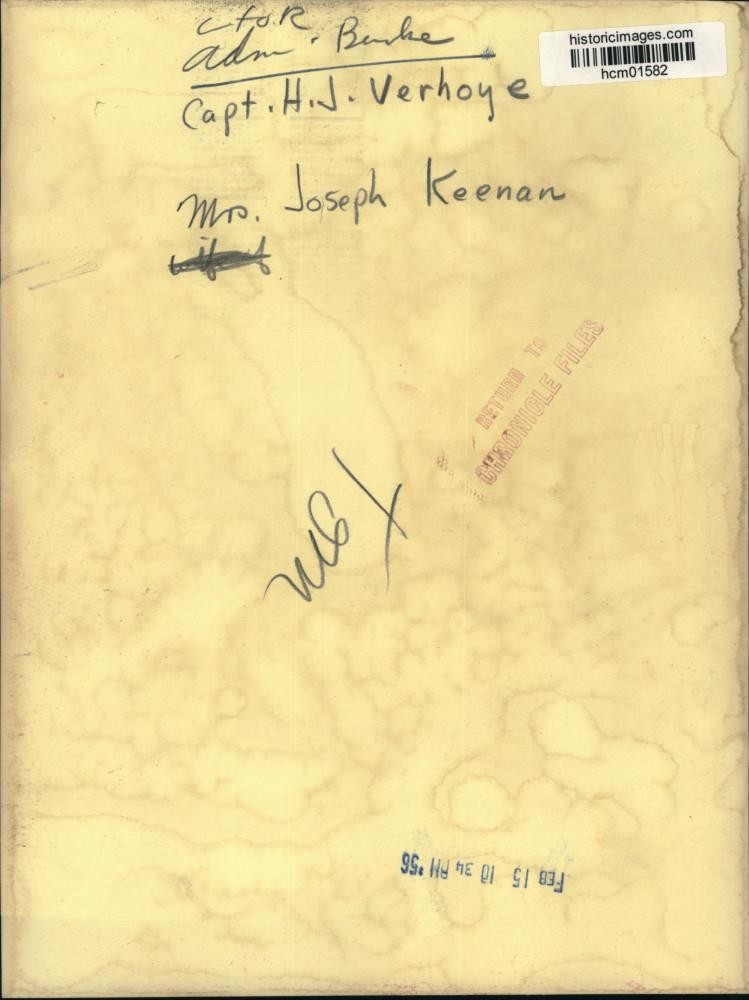 L to R
Adm. Burke
Capt. H.J. Verhoye
Mrs. Joseph Keenan
historicimages.com
hcm01582
RETURN TO
CHRONICLE FILES
FEB 15 10 34 PM '56